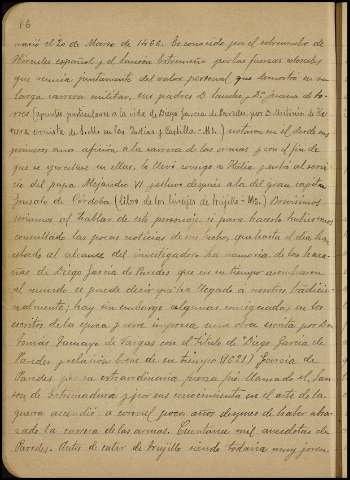 16
nació el 20 de Marzo de 1466. Es conocido por el sobrenombre de
Hércules español y el Sanson Extremeño por las fuerzas colosales
que reunia juntamente del valor personal que demostró en su
larga carrera militar, sus padres D. Sancho y Dª Juana de To-
rres (apuntes particulares a la vida de Diego Garcia de Paredes, por D. Antonio de He-
rrera cronista de Indias en las Indias y Castilla - Ms.) notaron en él desde sus
primeros años aficion a la carrera de las armas y con el fin de
que se ejercitase en ellas, le llevó consigo a Italia y entró al servi-
cio del papa Alejandro VI y estuvo después a la del gran capitan
Gonzalo de Córdoba (Libro de los linajes de Trujillo - Ms.)
seriamos al hablar de este personaje si para hacerlo hubieramos
consultado las pocas noticias de sus hechos, que hasta el dia han
echado al alcance del investigador la memoria de las haza-
ñas de Diego Garcia de Paredes que en su tiempo asombraron
el mundo se puede decir que ha llegado a nosotros tradicio-
nalmente; hay sin embargo algunas consignadas en los
escritos de la época y corre impresa una obra escrita por Don
Tomás Tamayo de Vargas con el titulo de Diego Garcia de
Paredes y relacion breve de su tiempo (1621) Garcia de
Paredes por su extraordinaria fuerza fué llamado el San-
son de Extremadura y por sus conocimientos en el arte de la
guerra ascendió a coronel pocos años despues de haber abra-
zado la carrera de las armas. Cuentanse mil anecdotas de
Paredes. Antes de salir de Trujillo siendo todavia muy joven